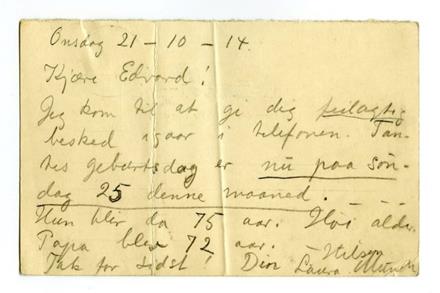 Onsdag 21 – 10 – 14.
Kjære Edvard!
Jeg kom til at gi dig feilagtig
besked igaar i telefonen. Tan-
tes gebursdag er nu paa søn-
dag 25 denne maaned.
Hun blir da 75 aar. Høi alder.
Papa blev 72 aar. – Hilsen
Tak for sidst! Din Laura Munch